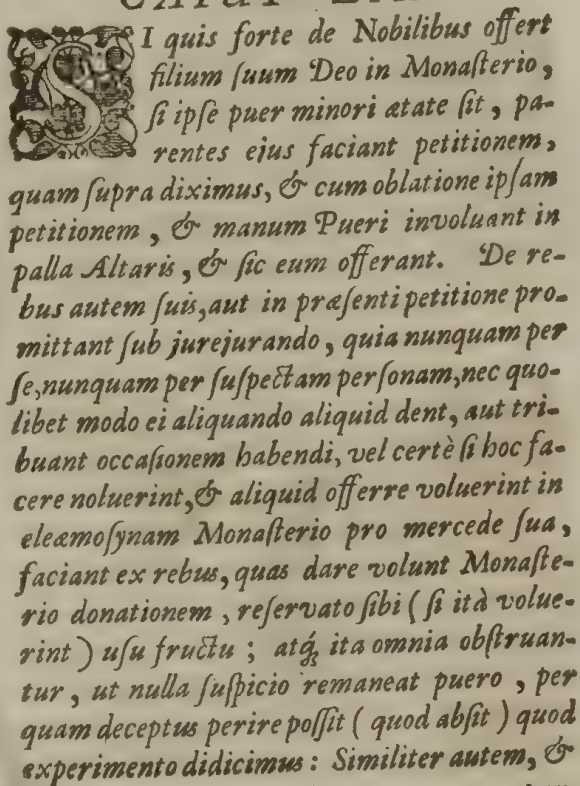 SI quis forte de Nobilibus offert
filium ſuum Deo in Monaſterio,
ſi ipſe puer minori ætate ſit, pa-
rentes ejus faciant petitionem,
quam ſupra diximus, & cum oblatione ipſam
petitionem, & manum Pueri involuant in
palla Altaris, & ſic eum offerant. De re-
bus autem ſuis, aut in præſenti petitione pro-
mittant ſub jurejurando, quia nunquam per
ſe, nunquam per ſuſpectam perſonam, nec quo-
libet modo ei aliquando aliquid dent, aut tri-
buant occaſionem habendi, vel certè ſi hoc fa-
cere noluerint, & aliquid offerre voluerint in
eleæmoſynam Monaſterio pro mercede ſua,
faciant ex rebus, quas dare volunt Monaſte-
rio donationem, reſervato ſibi ( ſi ità volue-
rint ) uſu fructu ; atq́ꝫ ita omnia obſtruan-
tur, ut nulla ſuſpicio remaneat puero, per
quam deceptus perire poſſit ( quod abſit ) quod
experimento didicimus : Similiter autem, &